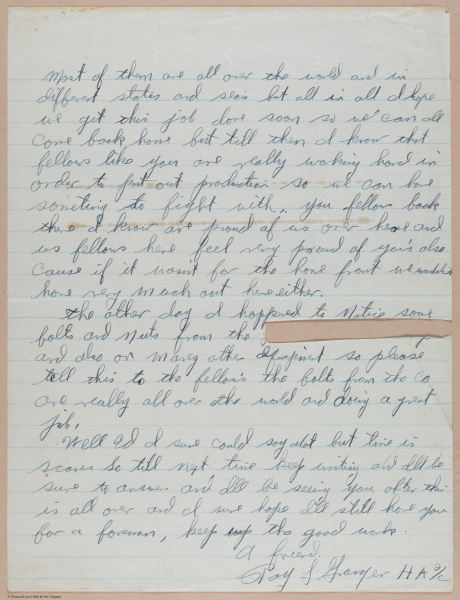 Most of them are all over the world and in
different states and seas but all in all I hope
we get this job done soon so we can all
come back home but till then I know that
fellows like you are really working hard in
order to put out production so we can have
someting to fight with. you fellows back
there I know are proud of us over here and
us fellows here feel very proud of you's also
cause if it wasnt for the home front we wouldn't
have very much out here either.
the other day I happered to notice some
bolts and nuts from the
and also on many other so please
tell this to the fellows the bolts from the Co
are really all over the world and doing a great
job.
Well Ed I sure could say alot but time is
scarce so till next time keep writing and I'll be
sure to answer and I'll be seeing you after this
is all over and I sure hope I'll still have you
for a foreman, keep up the good work.
A friend.
Ray S Granger HA 2/c